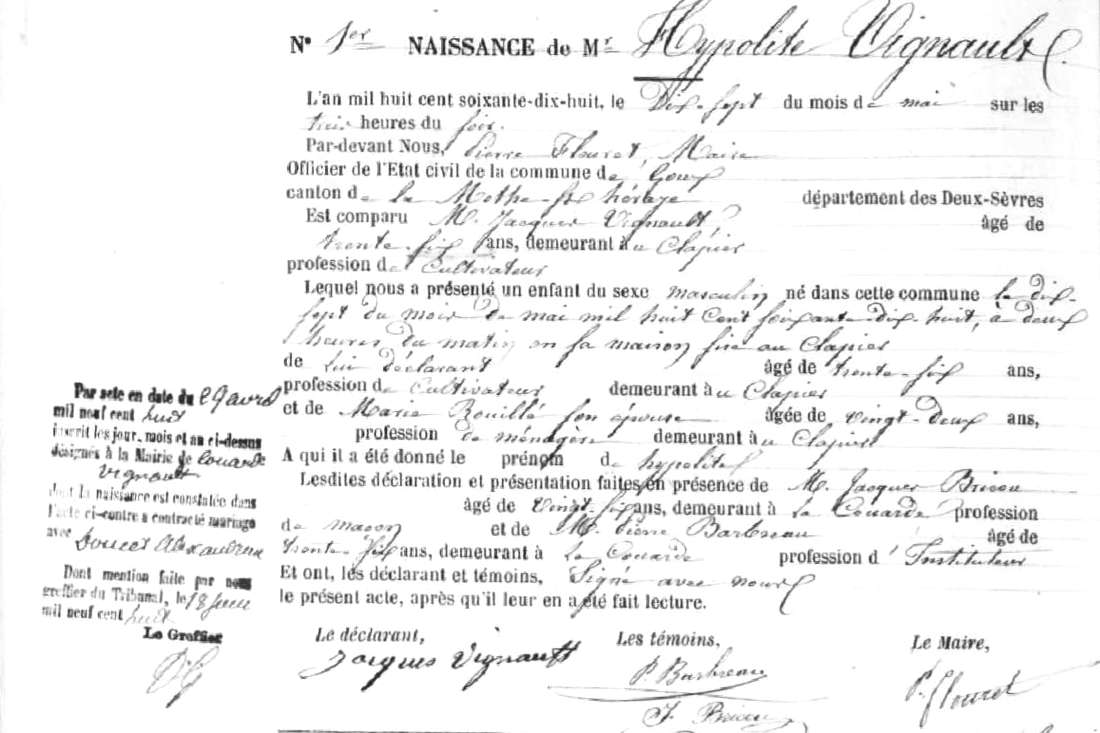 N° 1er NAISSANCE de Mr Hypolite Vignault
L'an mil huit cent soixante-dix-huit, le Dix-sept du mois de mai sur les
trois heures du soir.
Par-devant Nous, Pierre Flouret, Maire
Officier de l'Etat civil de la commune de Goux
canton de la Mothe-st héraye département des Deux-Sèvres
Est comparu M. Jacques Vignault âgé de
trente-six ans, demeurant au Clapier
profession de Cultivateur
Lequel nous a présenté un enfant du sexe masculin né dans cette commune le dix-
sept du mois de mai mil huit cent soixante-dix-huit, à deux
heures du matin en sa maison sise au Clapier
de lui déclarant âgé de trente-six ans,
profession de Cultivateur demeurant au Clapier
et de Marie Rouillé son épouse âgée de vingt-deux ans,
profession de ménagère demeurant au Clapier
A qui il a été donné le prénom d hypolite
Lesdites déclaration et présentation faites en présence de M. Jacques Bricou
âgé de vingt-six ans, demeurant à la Couarde profession
de maçon et de M. Pierre Barbreau âgé de
trente-six ans, demeurant à la Couarde profession d'Instituteur
Et ont, les déclarant et témoins, Signé avec nous
le présent acte, après qu'il leur en a été fait lecture.
Le déclarant, Les témoins, Le Maire,
Jacques Vignault P. Barbreau P. Flouret
J. Bricou
Par acte en date du 29 avril
mil neuf cent huit
inscrit les jour, mois et an ci-dessus
désignés à la Mairie de Couarde
Vignault
dont la naissance est constatée dans
l'acte ci-contre a contracté mariage
avec Doucet Alexandrine
Dont mention faite par nous
greffier du Tribunal, le 18 juin
mil neuf cent huit
Le Greffier